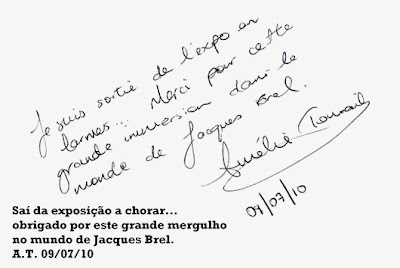 Je suis sortie de l'expo en
larmes... Merci pour cette
grande immersion dans le
monde de Jacques Brel.
Amélie
09/07/10
Saí da exposição a chorar...
obrigado por este grande mergulho
no mundo de Jacques Brel.
A.T. 09/07/10